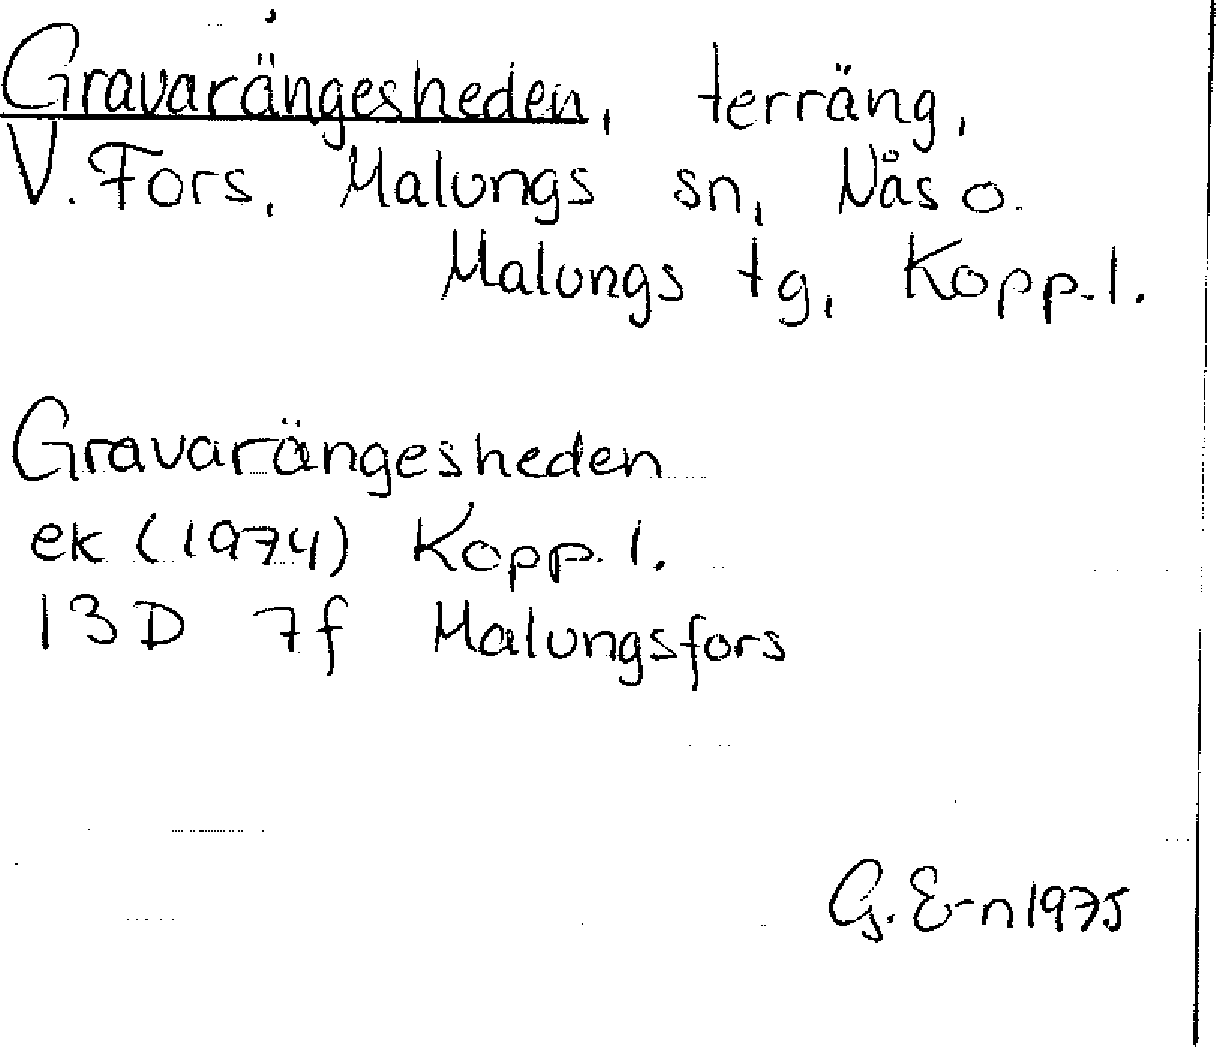 Gravarängesheden, terräng,
V. Fors, Malungs sn, Nås o.
Malungs tg, Kopp. l.
Gravarängesheden
ek (1974) Kopp. l.
13D 7f Malungsfors
G. E-n 1975